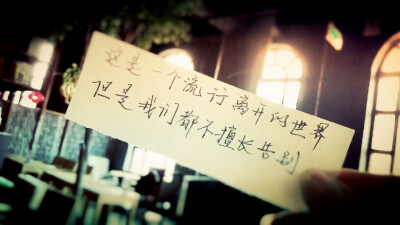 这是一个流行离开的世界
但是我们都不擅长告别